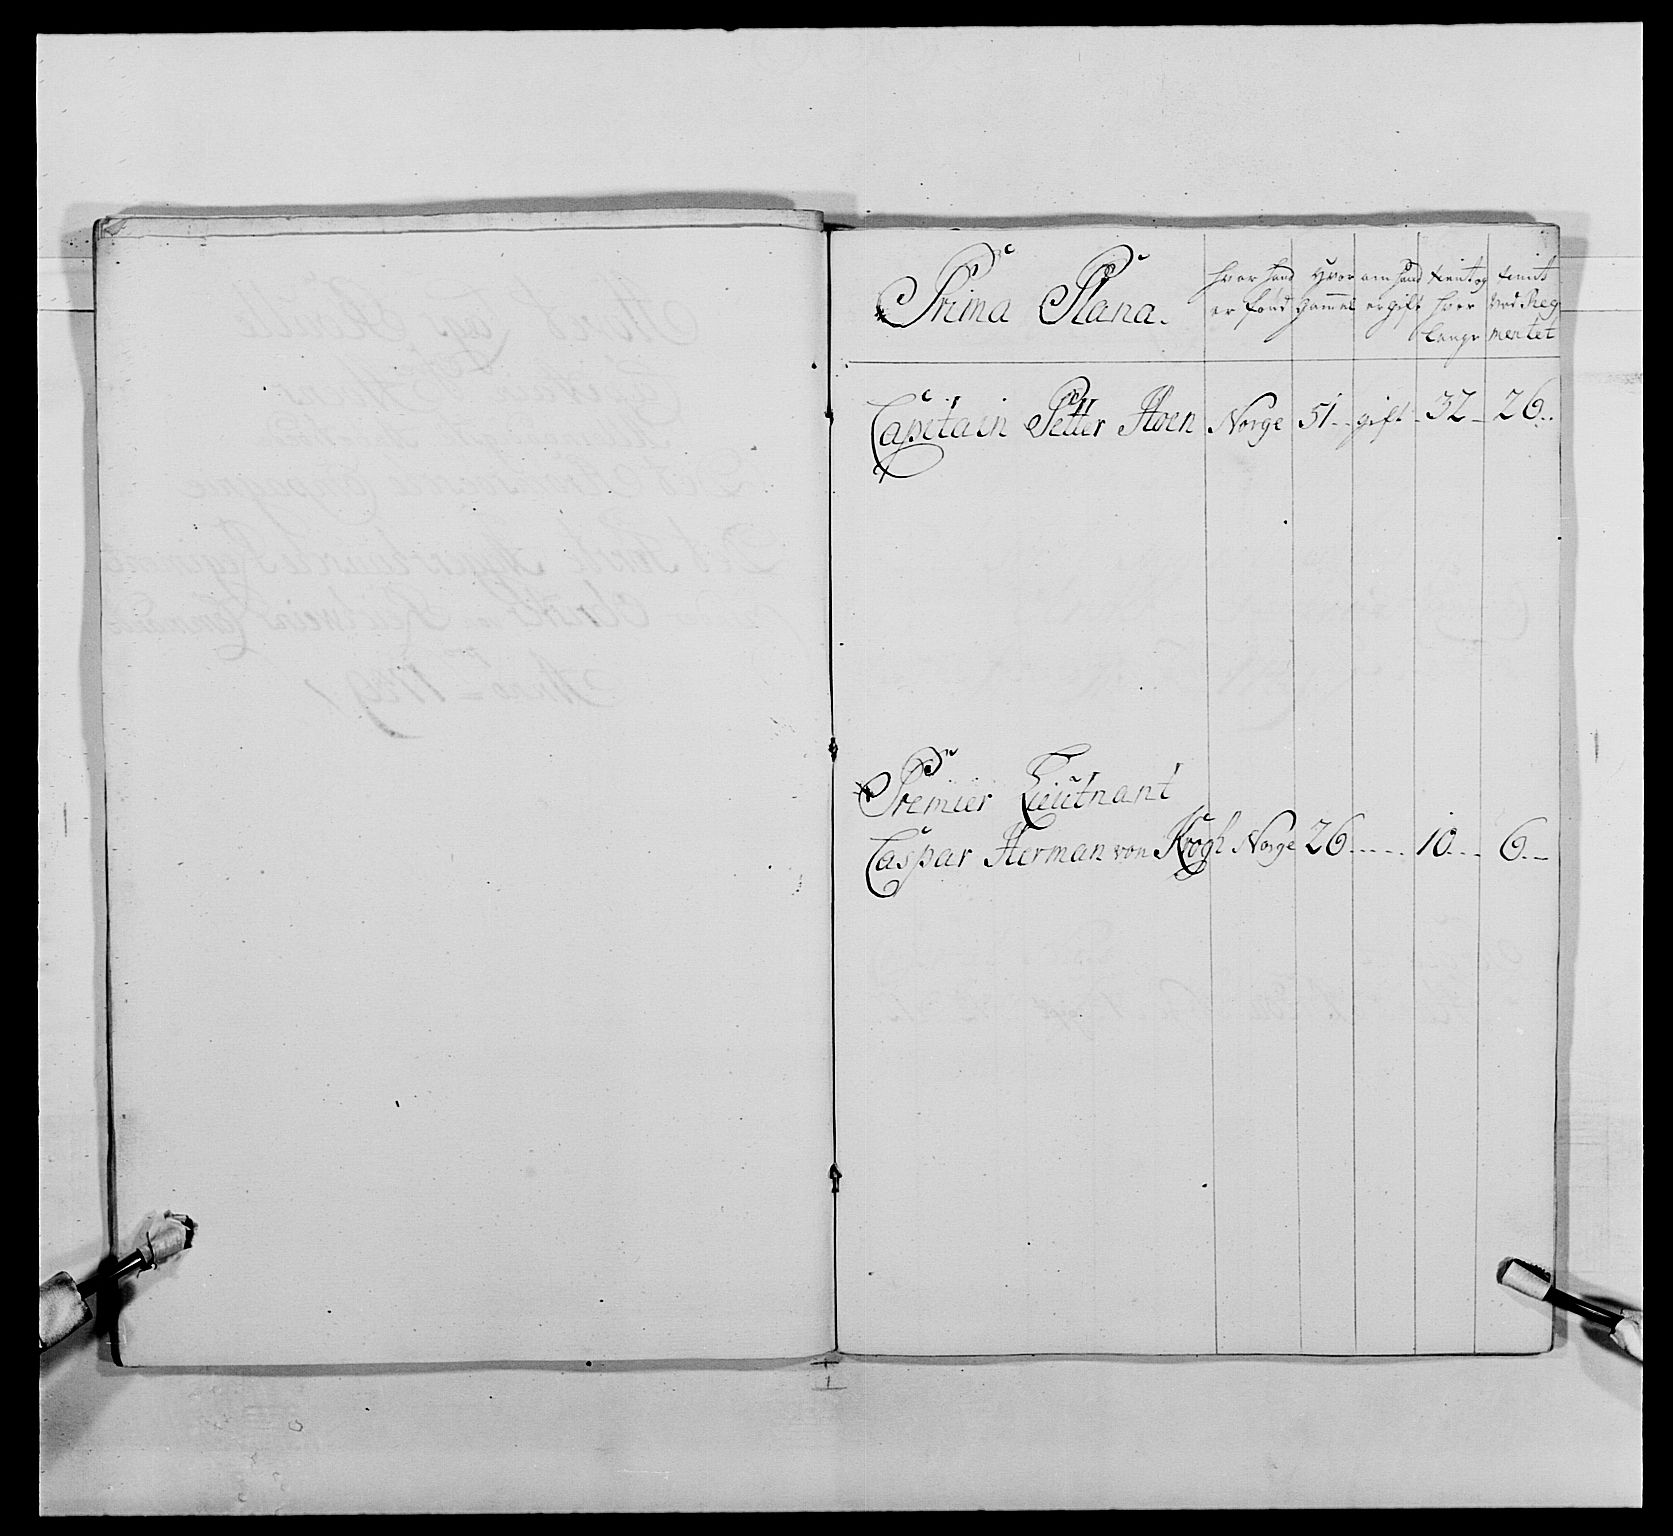 Prima Plana.
hvor hand er fød
Hvor Gammel
om hand er gift
tient og hvor lange
tient ved Regimentet
Capitain Petter Hoen Norge 51 gift 32 26
Premier Lieutnant
Caspar Herman von Krogh Norge 26 10 6